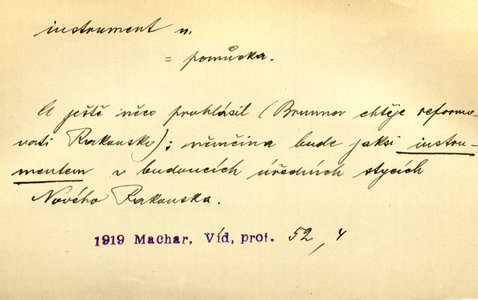 instrument n.
= pomůcka.
A ještě něco prohlásil (Brunner chtěje reformo-
vati Rakousko): němčina bude jaksi instru-
mentem v budoucích úředních stycích
Nového Rakouska.
1919 Machar, Víd. prof. 52, 4